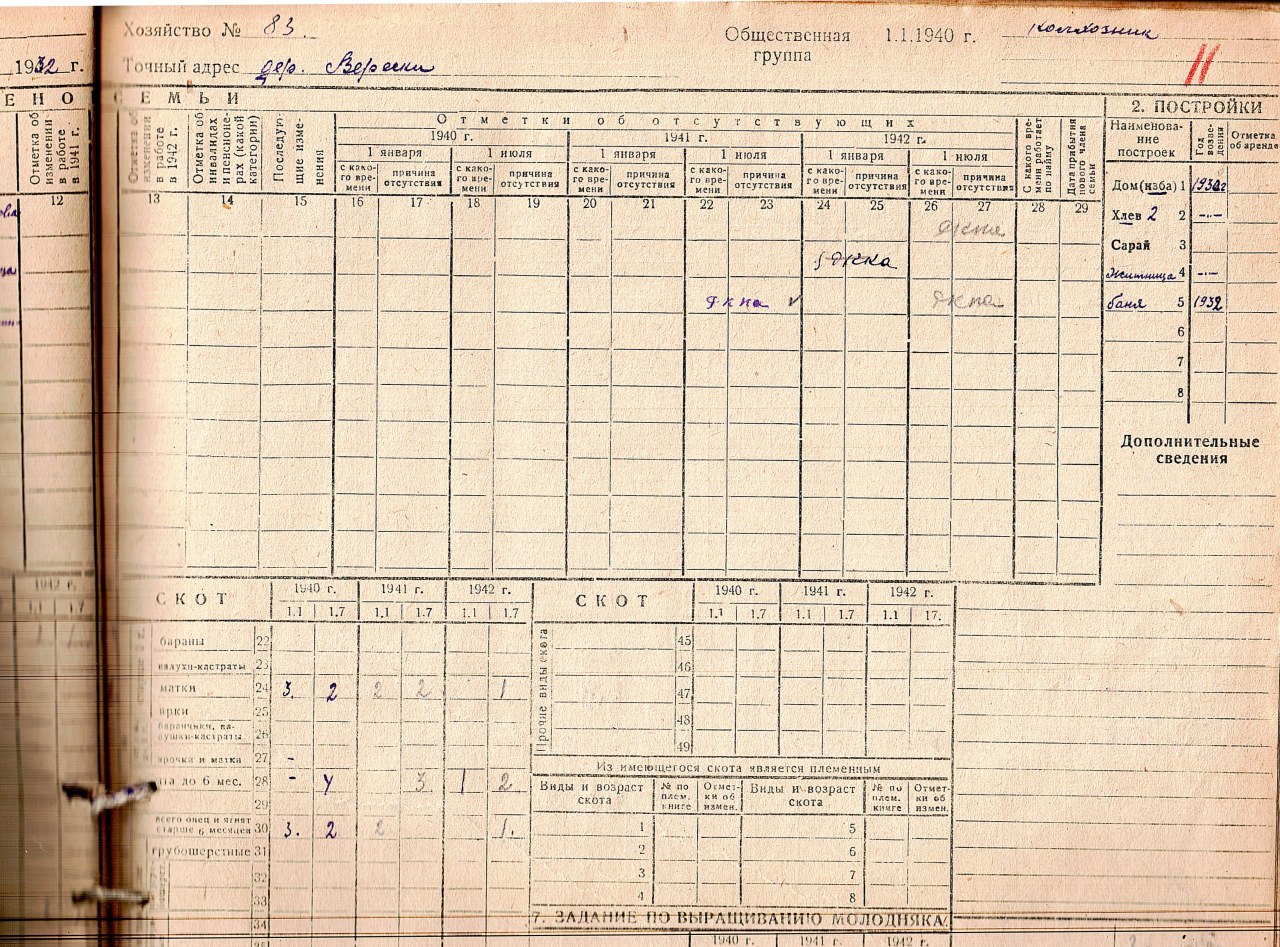 Хозяйство № 83.
Общественная группа 1.1.1940 г. колхозник
11
1932 г. Точный адрес дер. Верески
ЕНО СЕМЬИ
2. ПОСТРОЙКИ
Отметка об изменении в работе в 1941 г.
Отметка об изменении в работе в 1942 г.
Отметка об инвалидах и пенсионерах (какой категории)
Последующие изменения
Отметки об отсутствующих
1940 г. 1941 г. 1942 г.
1 января 1 июля 1 января 1 июля 1 января 1 июля
с какого времени причина отсутствия с какого времени причина отсутствия с какого времени причина отсутствия с какого времени причина отсутствия с какого времени причина отсутствия с какого времени причина отсутствия
С какого времени работает по найму
Дата прибытия нового члена семьи
12 13 14 15 16 17 18 19 20 21 22 23 24 25 26 27 28 29
Наименование построек Год возведения Отметка об аренде
Дом(изба) 1 1932г
Хлев 2 2 -"-
Сарай 3
Житница 4 -"-
баня 5 1932
6
7
8
Дополнительные сведения
1942 г.
1.1 1.7
СКОТ 1940 г. 1941 г. 1942 г.
1.1 1.7 1.1 1.7 1.1 1.7
бараны 22
валухи-кастраты 23
матки 24 3. 2 2 2 1
ярки 25
26
ярочка и матки 27 -
та до 6 мес. 28 - 4 3 1 2
29
всего овец и ягнят старше 6 месяцев 30 3. 2 2 1.
грубошерстные 31
32
33
34
СКОТ 1940 г. 1941 г. 1942 г.
1.1 1.7 1.1 1.7 1.1 17.
Прочие виды скота
45
46
47
48
49
Из имеющегося скота является племенным
Виды и возраст скота № по плем. книге Отметки об измен. Виды и возраст скота № по плем. книге Отметки об измен.
1 5
2 6
3 7
4 8
7. ЗАДАНИЕ ПО ВЫРАЩИВАНИЮ МОЛОДНЯКА
1940 г. 1941 г. 1942 г.